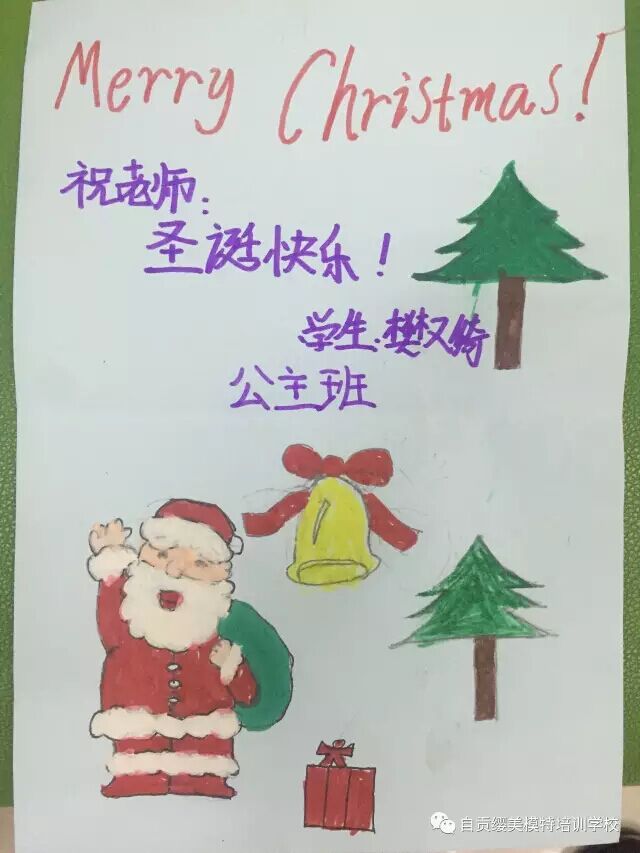 Merry Christmas!
祝老师:
圣诞快乐!
学生:樊又绮
公主班
自贡缨美模特培训学校